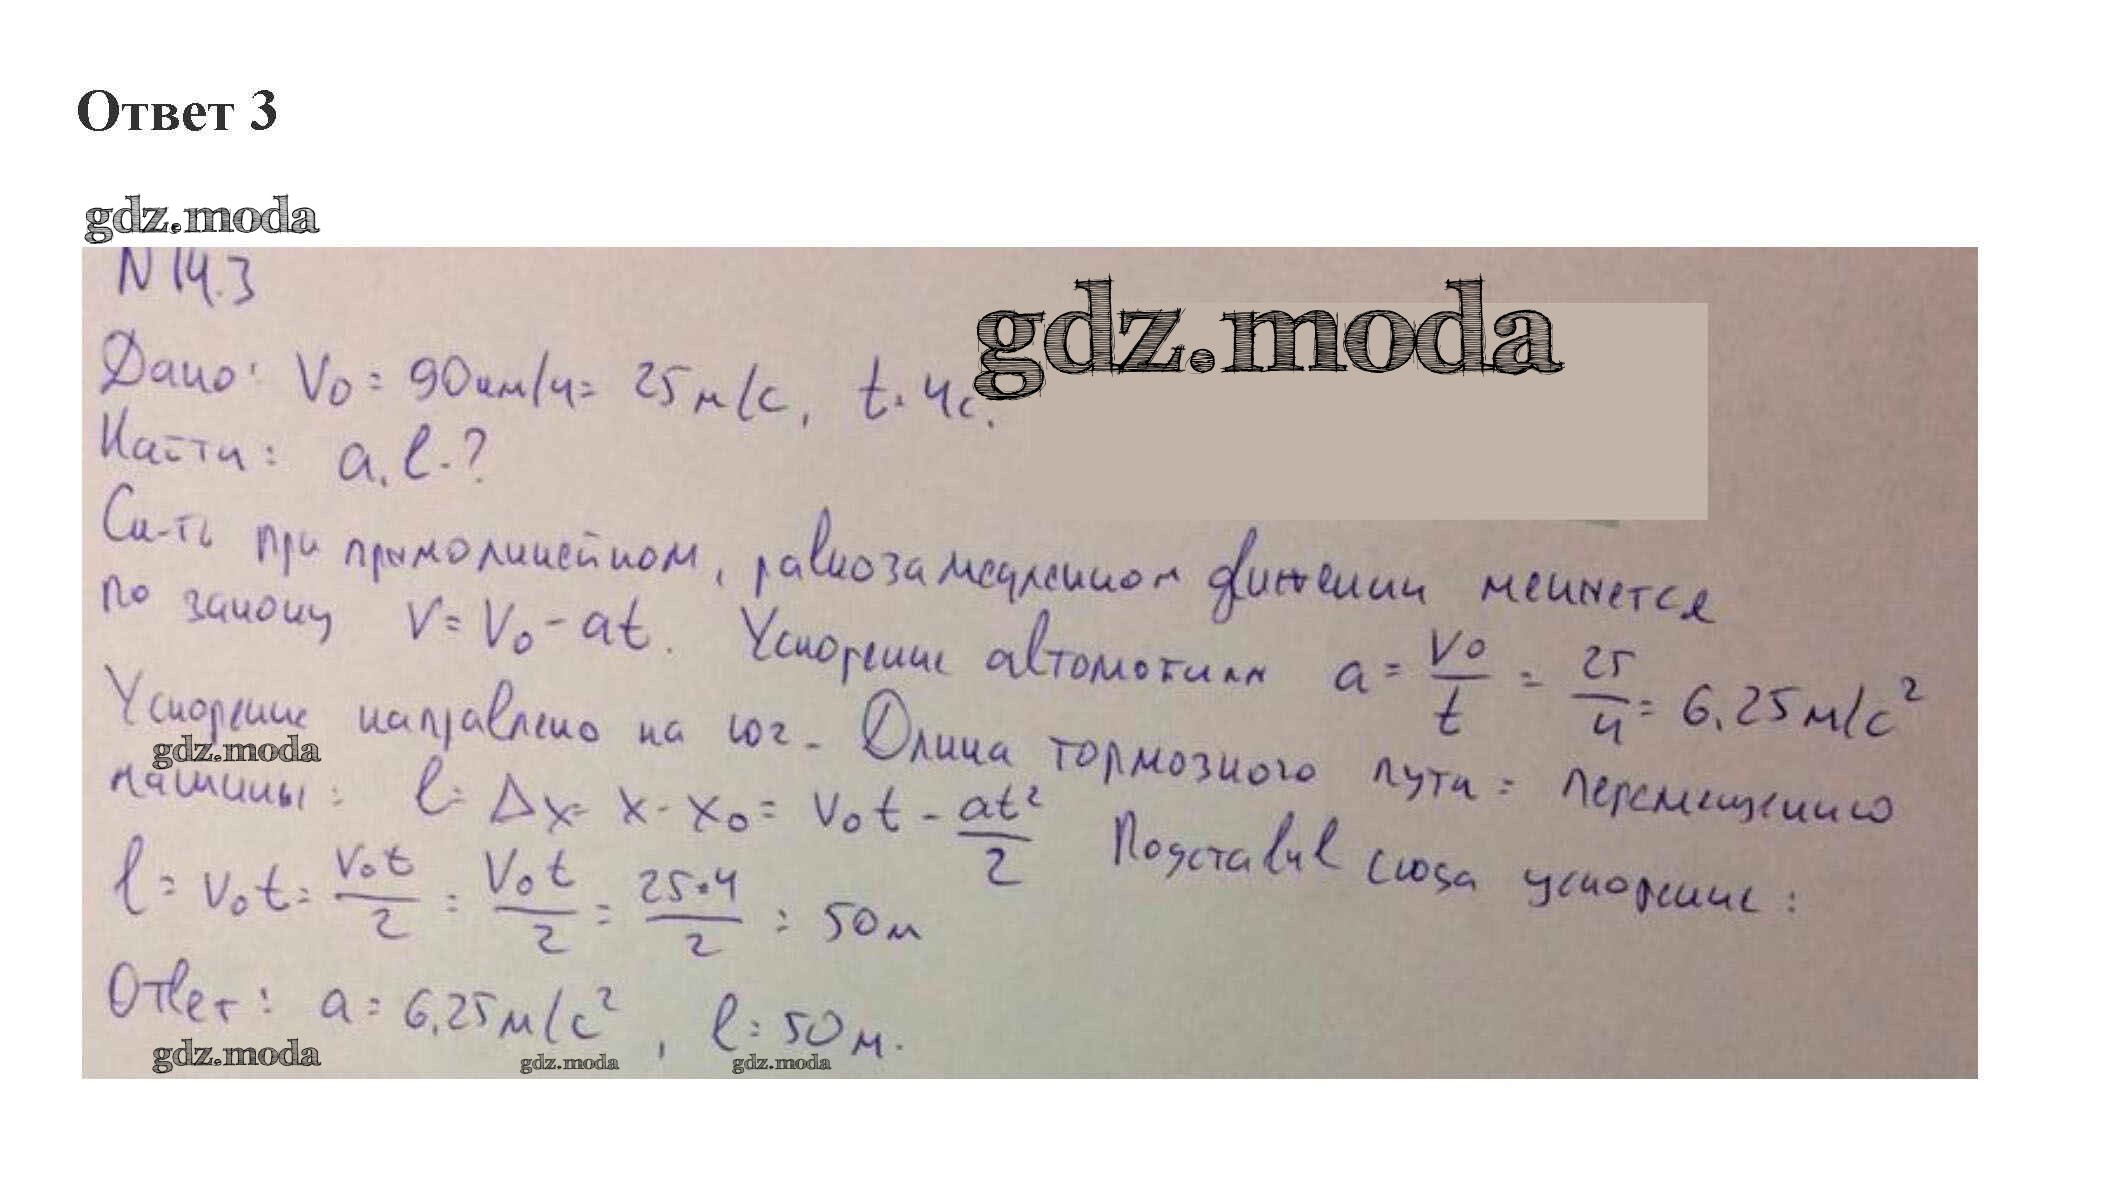 Ответ 3
gdz.moda
N 14.3
gdz.moda
Дано: V₀ = 90км/ч = 25м/с, t = 4с.
Найти: a, l - ?
Ск-ть при прямолинейном, равнозамедленном движении меняется
по закону V = V₀ - at. Ускорение автомобиля a = V₀/t = 25/4 = 6,25м/с²
Ускорение направлено на юг. Длина тормозного пути = перемещению
gdz.moda
машины: l = Δx = x - x₀ = V₀t - at²/2 Подставив сюда ускорение:
l = V₀t = V₀t/2 = V₀t/2 = 25·4/2 = 50м
Ответ: a = 6,25м/с², l = 50м.
gdz.moda gdz.moda gdz.moda